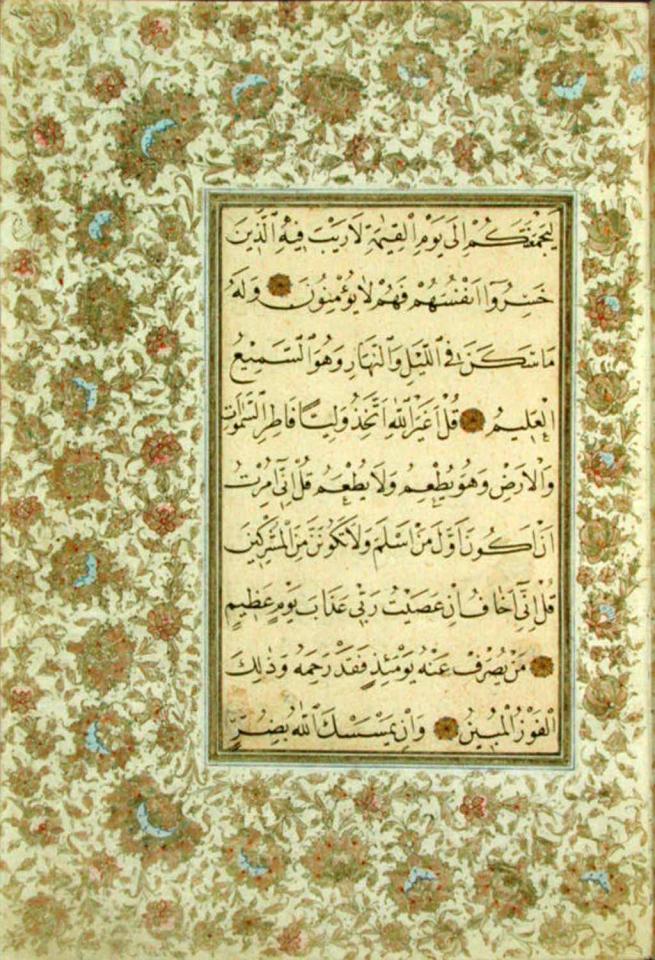 لَيَجْمَعَنَّكُمْ اِلٰى يَوْمِ الْقِيٰمَةِ لَا رَيْبَ فِيهِ اَلَّذِينَ
خَسِرُوا اَنْفُسَهُمْ فَهُمْ لَا يُؤْمِنُونَ وَلَهُ
مَا سَكَنَ فِى الَّيْلِ وَالنَّهَارِ وَهُوَ السَّمِيعُ
الْعَلِيمُ قُلْ اَغَيْرَ اللّٰهِ اَتَّخِذُ وَلِيًّا فَاطِرِ السَّمٰوَاتِ
وَالْاَرْضِ وَهُوَ يُطْعِمُ وَلَا يُطْعَمُ قُلْ اِنِّى اُمِرْتُ
اَنْ اَكُونَ اَوَّلَ مَنْ اَسْلَمَ وَلَا تَكُونَنَّ مِنَ الْمُشْرِكِينَ
قُلْ اِنِّى اَخَافُ اِنْ عَصَيْتُ رَبِّى عَذَابَ يَوْمٍ عَظِيمٍ
مَنْ يُصْرَفْ عَنْهُ يَوْمَئِذٍ فَقَدْ رَحِمَهُ وَذٰلِكَ
الْفَوْزُ الْمُبِينُ وَاِنْ يَمْسَسْكَ اللّٰهُ بِضُرٍّ